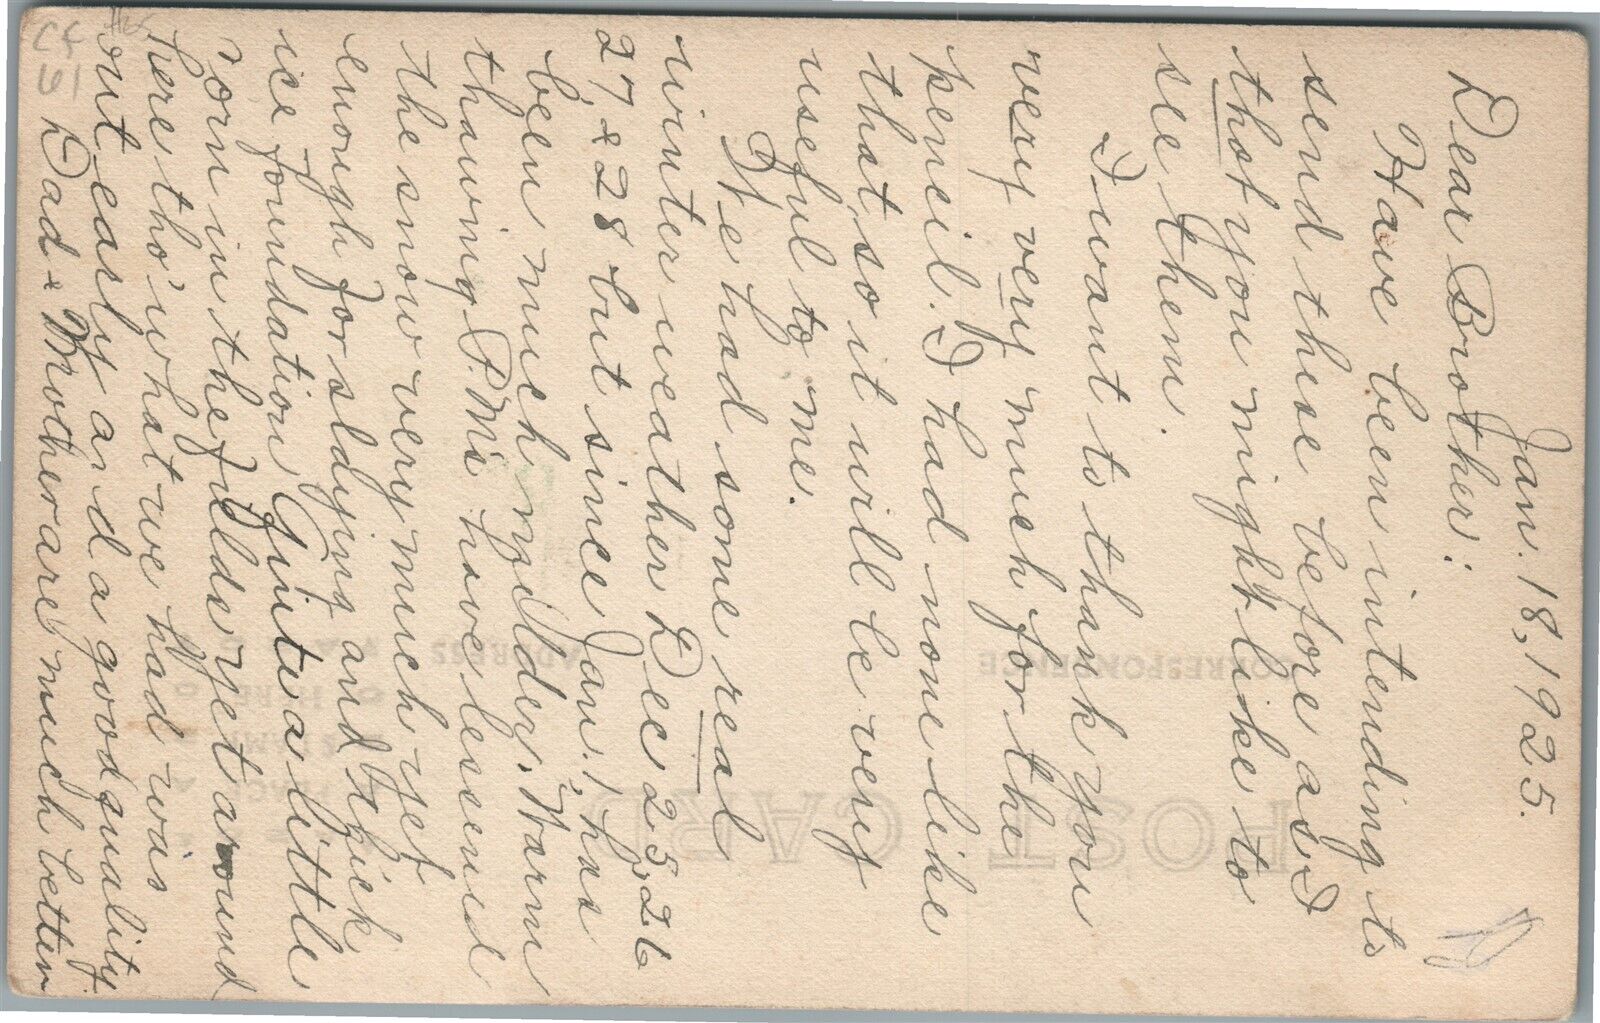 Jan. 18, 1925.
Dear Brother:
Have been intending to
send these before as I
thot you might like to
see them.
I want to thank you
very very much for the
pencil. I had none like
that, so it will be very
useful to me.
We had some real
winter weather Dec 25, 26
27, & 28 but since Jan. 1, has
been much milder. Warm
thawing P.M.s have lessened
the snow very much yet
enough for sldijng and thick
ice foundation. Quite a little
corn in the fields yet around
here tho' what we had was
out early and a good quality.
Dad & Mother are much better
POST CARD
CORRESPONDENCE
ADDRESS
PLACE
STAMP
HERE
CF
61